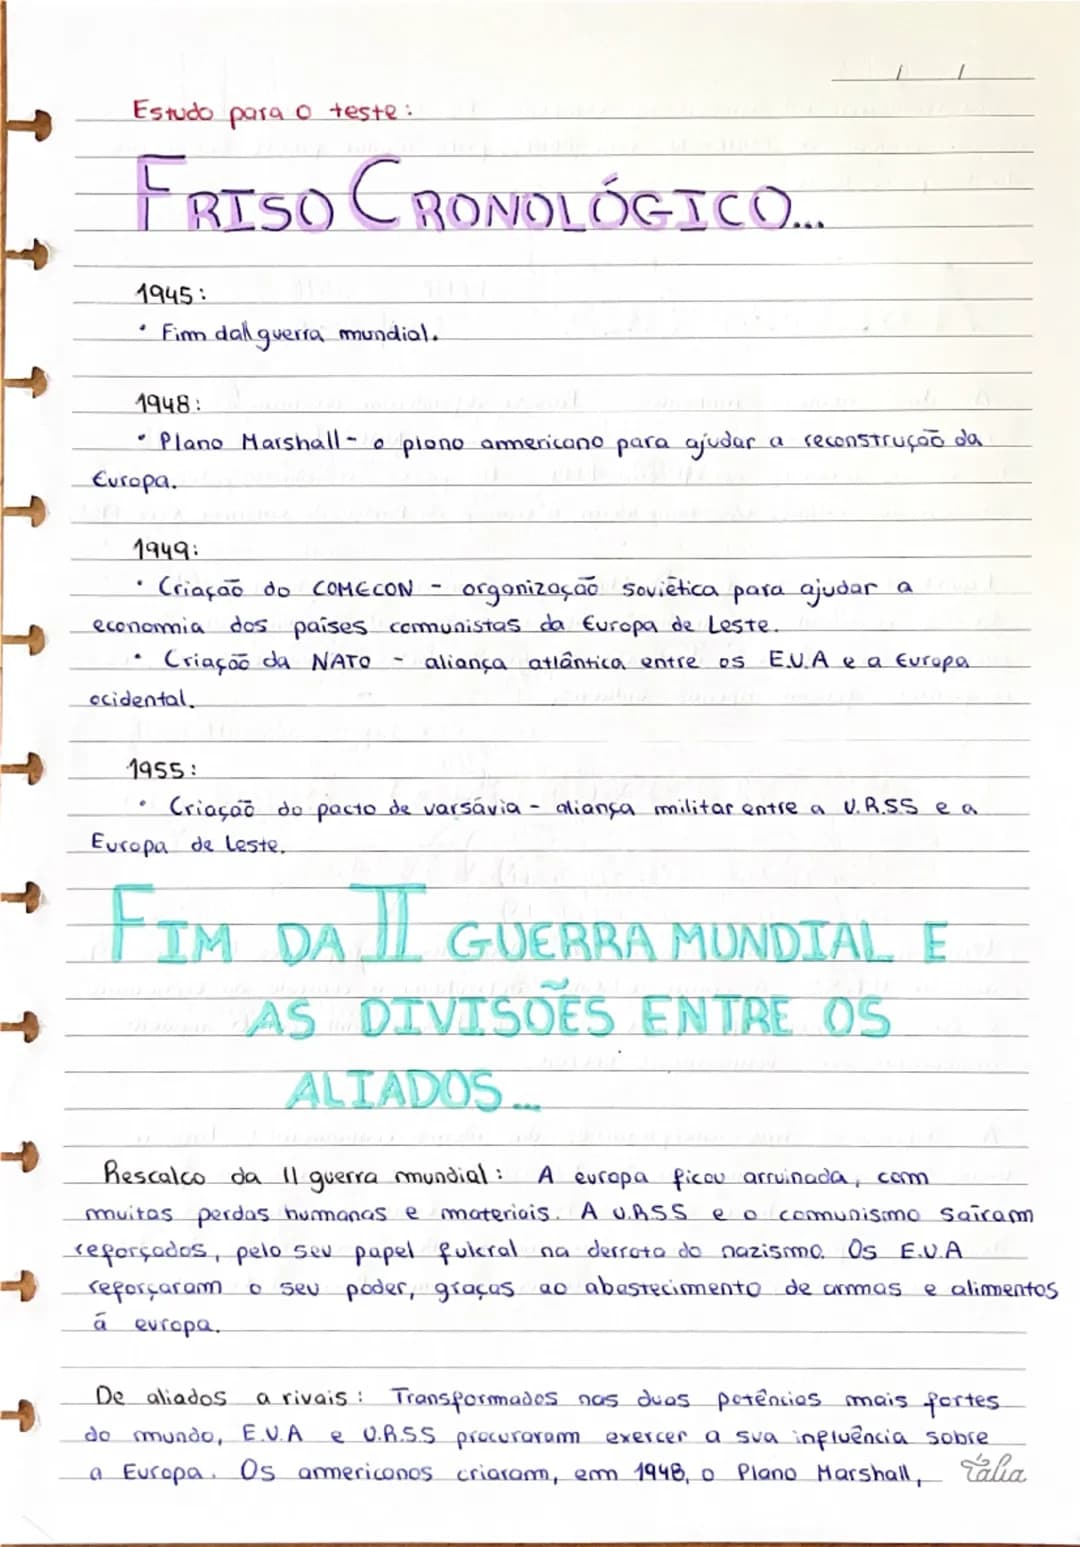 / /
Estudo para o teste:
FRISO CRONOLÓGICO...
1945:
• Fim da II guerra mundial.
1948:
• Plano Marshall - o plano americano para ajudar a reconstrução da
Europa.
1949:
• Criação do COMECON - organização soviética para ajudar a
economia dos países comunistas da Europa de Leste.
• Criação da NATO - aliança atlântica entre os E.U.A e a Europa
ocidental.
1955:
• Criação do pacto de varsávia - aliança militar entre a U.R.SS e a
Europa de Leste.
FIM DA II GUERRA MUNDIAL E
AS DIVISÕES ENTRE OS
ALIADOS...
Rescalco da II guerra mundial: A europa ficou arruinada, com
muitas perdas humanas e materiais. A U.R.SS e o comunismo saíram
reforçados, pelo seu papel fulcral na derrota do nazismo. Os E.U.A
reforçaram o seu poder, graças ao abastecimento de armas e alimentos
á europa.
De aliados a rivais: Transformados nas duas potências mais fortes
do mundo, E.U.A e U.R.SS procuraram exercer a sua influência sobre
a Europa. Os americanos criaram, em 1948, o Plano Marshall,
Tália